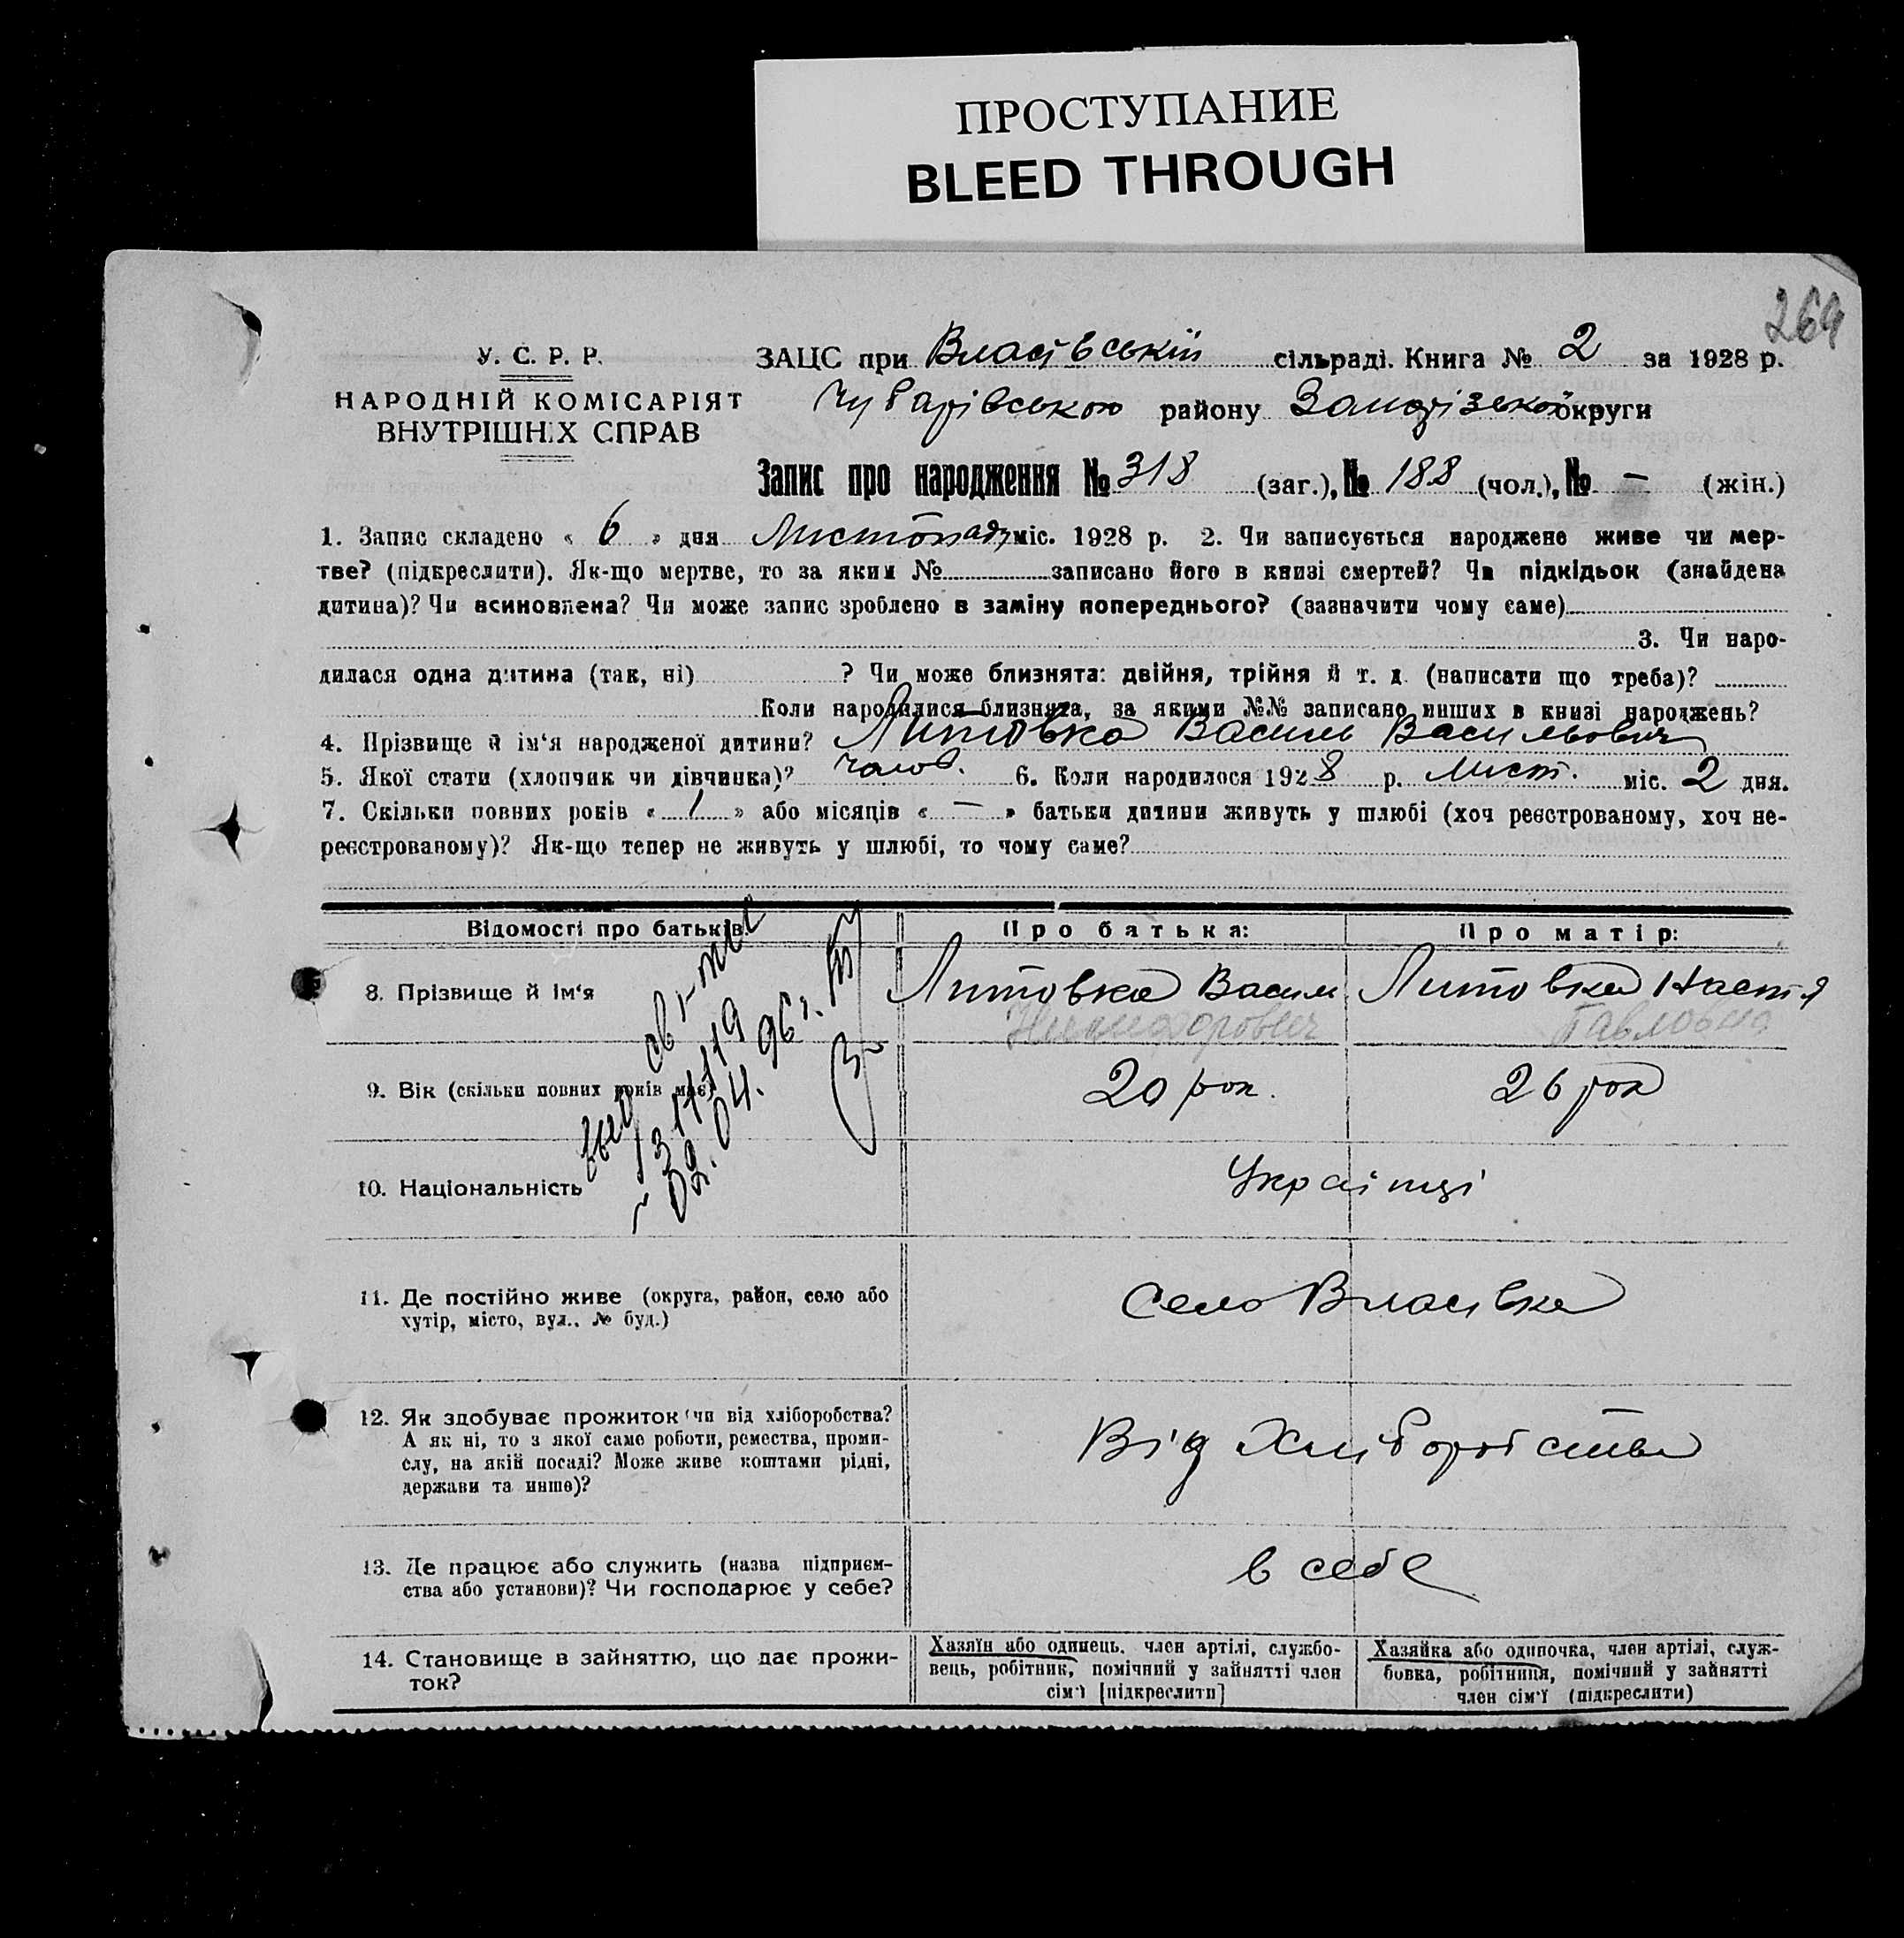 ПРОСТУПАНИЕ
BLEED THROUGH
264
У. С. Р. Р.
НАРОДНІЙ КОМІСАРІЯТ
ВНУТРІШНІХ СПРАВ
ЗАЦС при Власівській сільраді. Книга № 2 за 1928 р.
Чубарівською району Запорізької округи
Запис про народження № 318 (заг.), № 188 (чол.), № — (жін.)
1. Запис складено « 6 » дня Листопаду міс. 1928 р. 2. Чи записується народжене живе чи мер-
тве? (підкреслити). Як-що мертве, то за яким № записано його в книзі смертей? Чи підкідьок (знайдена
дитина)? Чи всиновлена? Чи може запис зроблено в заміну попереднього? (зазначити чому саме)
3. Чи наро-
дилася одна дитина (так, ні) ? Чи може близнята: двійня, трійня й т. д. (написати що треба)?
Коли народилися близнята, за якими №№ записано инших в книзі народжень?
4. Прізвище й ім'я народженої дитини? Литовка Василь Васильович
5. Якої стати (хлопчик чи дівчинка)? чолов. 6. Коли народилося 1928 р. Лист. міс. 2 дня.
7. Скільки повних років « 1 » або місяців « — » батьки дитини живуть у шлюбі (хоч реєстрованому, хоч не-
реєстрованому)? Як-що тепер не живуть у шлюбі, то чому саме?
Відомості про батьків:
Про батька:
Про матір:
8. Прізвище й ім'я
Литовка Васил
Никифорович
Литовка Настя
Павловна
9. Вік (скільки повних років має)
20 рок.
26 рок
10. Національність
Українці
11. Де постійно живе (округа, район, село або
хутір, місто, вул., № буд.)
село Власівка
12. Як здобуває прожиток (чи від хліборобства?
А як ні, то з якої саме роботи, ремества, проми-
слу, на якій посаді? Може живе коштами рідні,
держави та инше)?
Від Хліборобства
13. Де працює або служить (назва підприєм-
ства або установи)? Чи господарює у себе?
в себе
14. Становище в зайняттю, що дає прожи-
ток?
Хазяїн або одинець, член артілі, службо-
вець, робітник, помічний у зайнятті член
сім'ї [підкреслити]
Хазяйка або одиночка, член артілі, служ-
бовка, робітниця, помічний у зайнятті
член сім'ї (підкреслити)